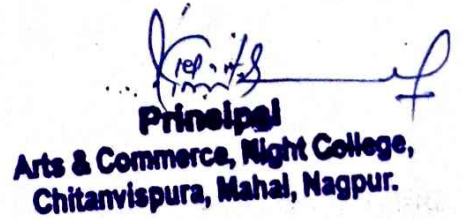 Principal
Arts & Commerce, Night College,
Chitanvispura, Mahal, Nagpur.